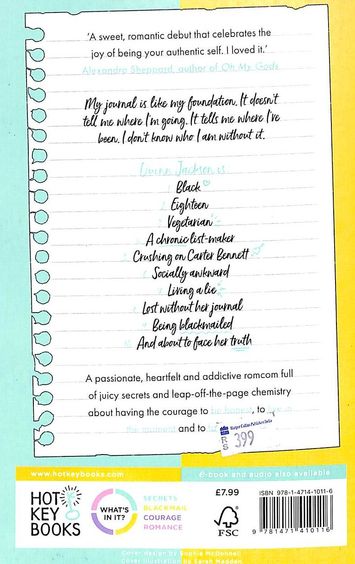 'A sweet, romantic debut that celebrates the
joy of being your authentic self. I loved it.'
Alexandra Sheppard, author of Oh My Gods
My journal is like my foundation. It doesn't
tell me where I'm going. It tells me where I've
been. I don't know who I am without it.
Quinn Jackson is
1. Black
2. Eighteen
3. Vegetarian
4. A chronic list-maker
5. Crushing on Carter Bennett
6. Socially awkward
7. Living a lie
8. Lost without her journal
9. Being blackmailed
10. And about to face her truth
A passionate, heartfelt and addictive romcom full
of juicy secrets and leap-off-the-page chemistry
about having the courage to be honest, to live in
the moment and to
HarperCollins Publishers India
RS 399
www.hotkeybooks.com
e-book and audio also available
HOT
KEY
BOOKS
WHAT'S
IN IT?
SECRETS
BLACKMAIL
COURAGE
ROMANCE
£7.99
FSC
ISBN 978-1-4714-1011-6
9 781471 410116
Cover design by Sophie McDonnell
Cover illustration by Sarah Madden